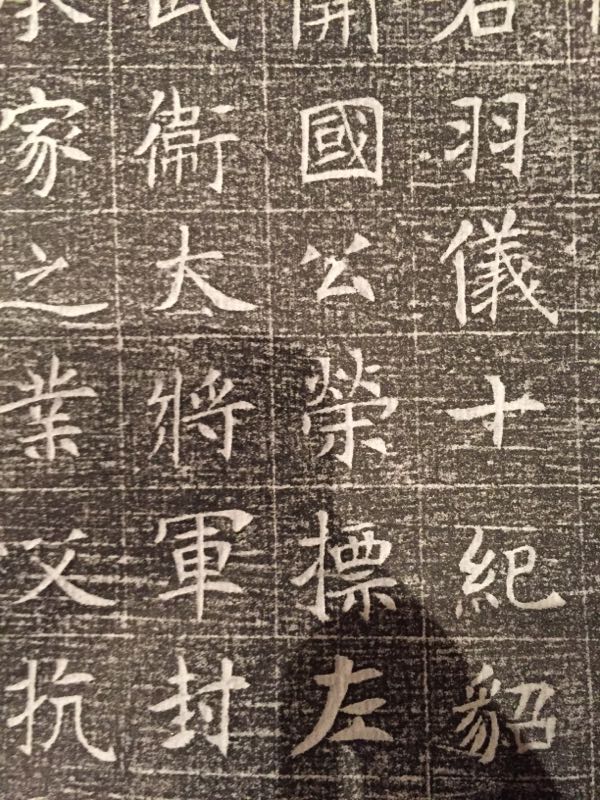 羽儀十紀貂
開國公榮摽左
武衛大將軍封
家之業父抗